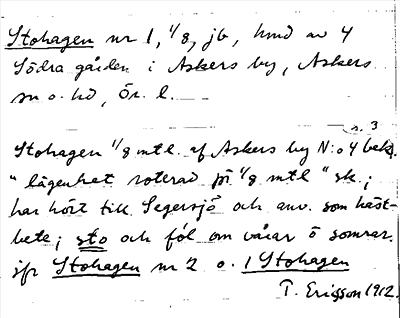 Stohagen nr 1, 1/8, jb, hmd av 4
Södra gården i Askers by, Askers
sn o. hd, Ör. l.
s. 3
Stohagen 1/8 mtl. af Askers by N:o 4 bek.
"lägenhet roterad på 1/8 mtl" sk.;
har hört till Segersjö och anv. som häst-
bete; sto och föl om vårar o somrar.
jfr Stohagen nr 2 o. 1 Stohagen
T. Ericsson 1912.